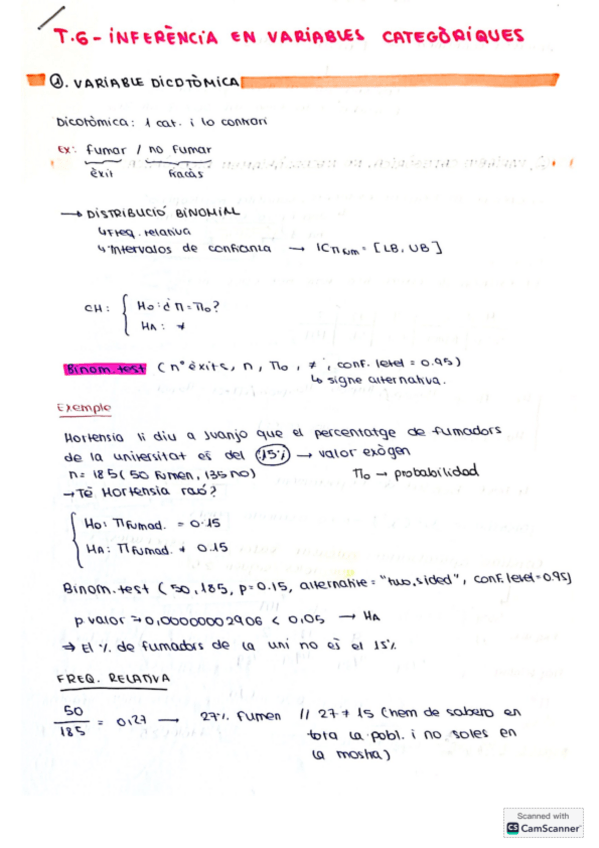 T.6 - INFERÈNCIA EN VARIABLES CATEGÒRIQUES
①. VARIABLE DICOTÒMICA
Dicotòmica: 1 cat. i lo contrari
Ex: fumar / no fumar
èxit fracàs
→ DISTRIBUCIÓ BINOMIAL
↳ Freq. relativa
↳ Intervalos de confianza → IC π fum = [LB, UB]
CH: { H0: ¿ π = π0?
HA: ≠
Binom.test (nº èxits, n, π0, ≠, conf. level = 0.95)
↳ signe alternativa.
Exemple
Hortensia li diu a Juanjo que el percentatge de fumadors
de la universitat es del 15% → valor exògen
n = 185 (50 fumen, 135 no) π0 → probabilidad
→ Té Hortensia raó?
{ H0: π fumad. = 0.15
HA: π fumad. ≠ 0.15
Binom.test (50, 185, p=0.15, alternative = "two.sided", conf.level=0.95)
p valor → 0,00000002906 < 0,05 → HA
⇒ El % de fumadors de la uni no és el 15%
FREQ. RELATIVA
50/185 = 0,27 → 27% fumen // 27 ≠ 15 (hem de sabero en
tota la pobl. i no soles en
la mostra)
Scanned with
CS CamScanner